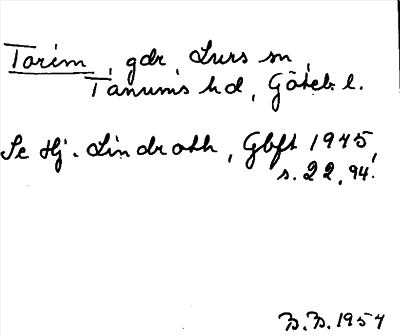 Torim, gdr, Lurs sn,
Tanums hd, Göteb. l.
Se Hj. Lindroth, Gbft 1945,
s. 22, 94.
B. B. 1957